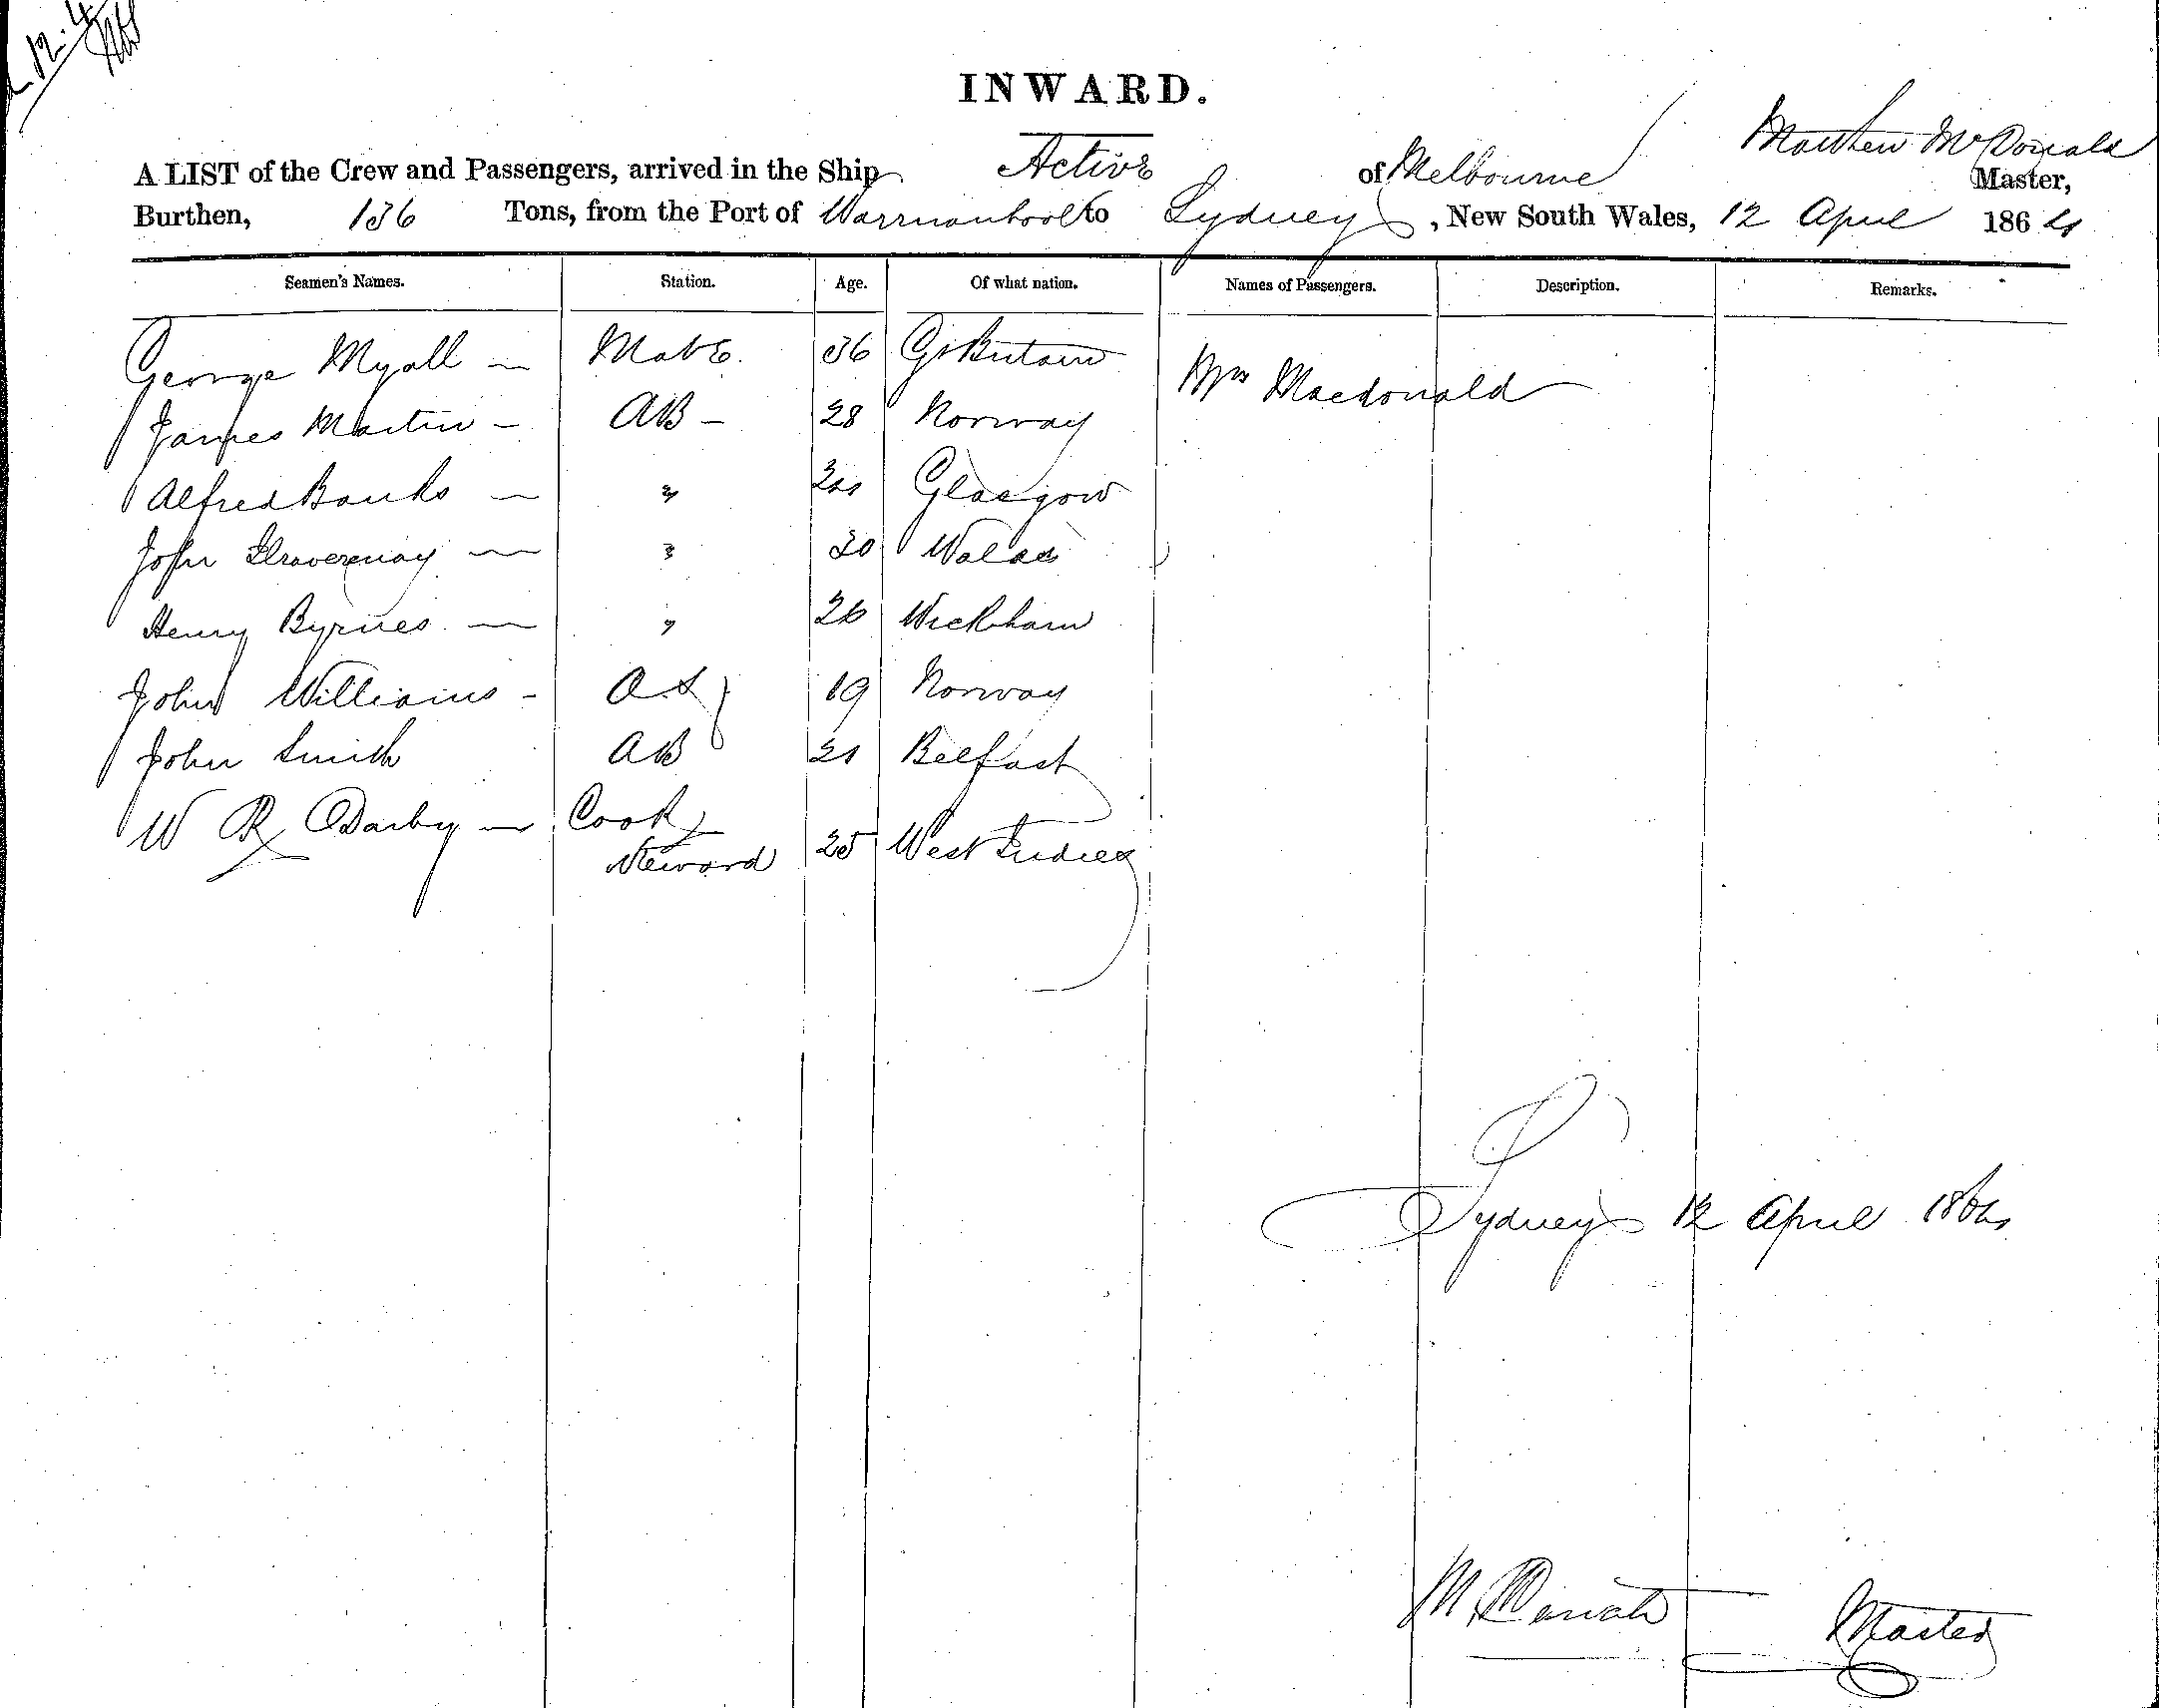 12.4
INWARD.
A LIST of the Crew and Passengers, arrived in the Ship Active of Melbourne Matthew McDonald Master,
Burthen, 136 Tons, from the Port of Warrnambool to Sydney, New South Wales, 12 April 1864
Seamen's Names. Station. Age. Of what nation. Names of Passengers. Description. Remarks.
George Myall — Mate. 36 Gt Britain Mrs Macdonald
James Martin — AB — 28 Norway
Alfred Banks — " Glasgow
John — " 30 Wales
Henry Byrnes. — " 26 Wickham
John Williams - OS 19 Norway
John Smith AB 21 Belfast
W R Darby — Cook
Steward 25 West Indies
Sydney 12 April 1864
M McDonald Master